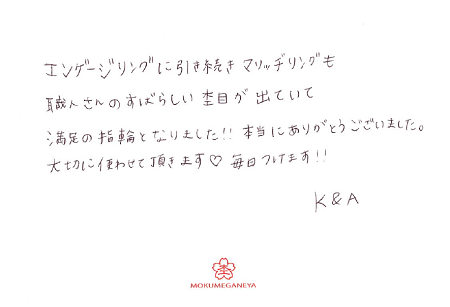 エンゲージリングに引き続き マリッヂリングも
職人さんのすばらしい杢目が出ていて
満足の指輪となりました!! 本当にありがとうございました。
大切に使わせて頂きます♡ 毎日つけます!!
K & A
杢
MOKUMEGANEYA